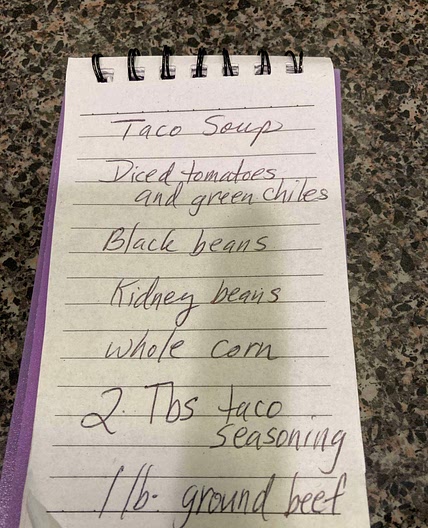 Taco Soup
Diced tomatoes
and green chiles
Black beans
Kidney beans
whole corn
2 Tbs taco
seasoning
1 lb. ground beef